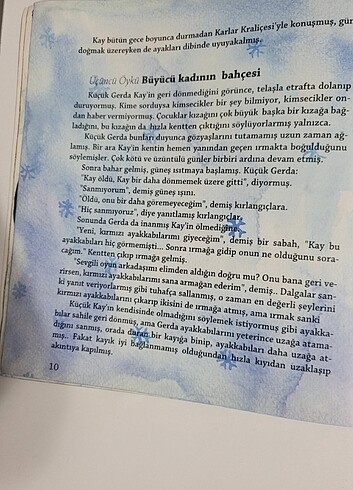 Kay bütün gece boyunca durmadan Karlar Kraliçesi'yle konuşmuş, gün
doğmak üzereyken de ayakları dibinde uyuyakalmış.
Üçüncü Öykü Büyücü kadının bahçesi
Küçük Gerda Kay'in geri dönmediğini görünce, telaşla etrafta dolanıp
duruyormuş. Kime sorduysa kimsecikler bir şey bilmiyor, kimsecikler on-
dan haber vermiyormuş. Çocuklar kızağını çok büyük başka bir kızağa bağ-
ladığını, bu kızağın da hızla kentten çıktığını söylüyorlarmış yalnızca.
Küçük Gerda bunları duyunca gözyaşlarını tutamamış uzun zaman ağ-
lamış. Bir ara Kay'in kentin hemen yanından geçen ırmakta boğulduğunu
söylemişler. Çok kötü ve üzüntülü günler birbiri ardına devam etmiş.
Sonra bahar gelmiş, güneş ısıtmaya başlamış. Küçük Gerda:
"Kay öldü, Kay bir daha dönmemek üzere gitti", diyormuş.
"Sanmıyorum", demiş güneş ışını.
"Öldü, onu bir daha göremeyeceğim", demiş kırlangıçlara.
"Hiç sanmıyoruz", diye yanıtlamış kırlangıçlar.
Sonunda Gerda da inanmış Kay'in ölmediğine.
"Yeni, kırmızı ayakkabılarımı giyeceğim", demiş bir sabah, "Kay bu
ayakkabıları hiç görmemişti... Sonra ırmağa gidip onun ne olduğunu sora-
cağım." Kentten çıkıp ırmağa gelmiş.
"Sevgili oyun arkadaşımı elimden aldığın doğru mu? Onu bana geri ve-
rirsen, kırmızı ayakkabılarımı sana armağan ederim", demiş.. Dalgalar san-
ki yanıt veriyorlarmış gibi tuhafça sallanmış, o zaman en değerli şeylerini
kırmızı ayakkabılarını çıkarıp ikisini de ırmağa atmış, ama ırmak sanki
Küçük Kay'in kendisinde olmadığını söylemek istiyormuş gibi ayakka-
bılar sahile geri dönmüş, ama Gerda ayakkabılarını yeterince uzağa atama-
dığını sanmış, orada duran bir kayığa binip, ayakkabıları daha uzağa at-
mış.. Fakat kayık iyi bağlanmamış olduğundan hızla kıyıdan uzaklaşıp
akıntıya kapılmış.
10